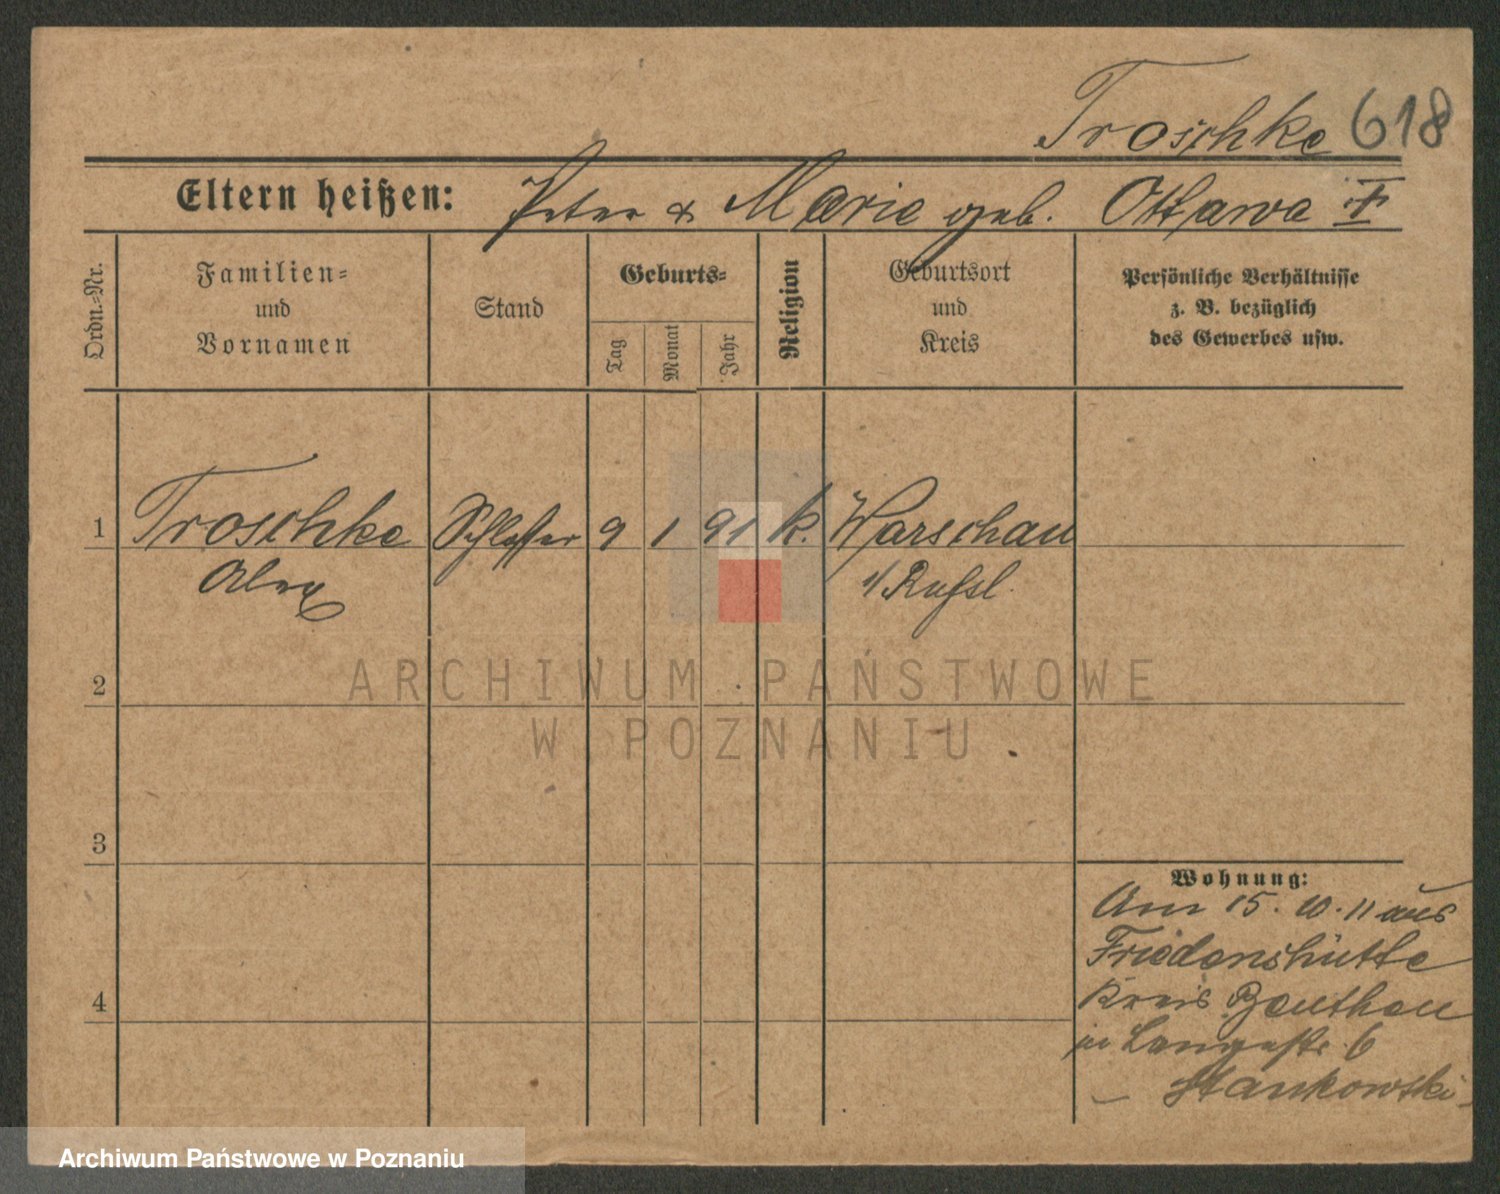 Troschke 618
Eltern heißen: Peter & Marie geb. Ottawa
Ordn.-Nr.
Familien-
und
Vornamen
Stand
Geburts-
Tag
Monat
Jahr
Religion
Geburtsort
und
Kreis
Persönliche Verhältnisse
z. B. bezüglich
des Gewerbes usw.
1 Troschke Schlosser 9 1 91 k. Warschau
Alex i/Rußl.
ARCHIWUM PAŃSTWOWE
W POZNANIU
2
3
4
Wohnung:
Am 15. 10. 11 aus
Friedenshütte
Kreis Beuthen
in Langestr. 6
Stankowski
Archiwum Państwowe w Poznaniu